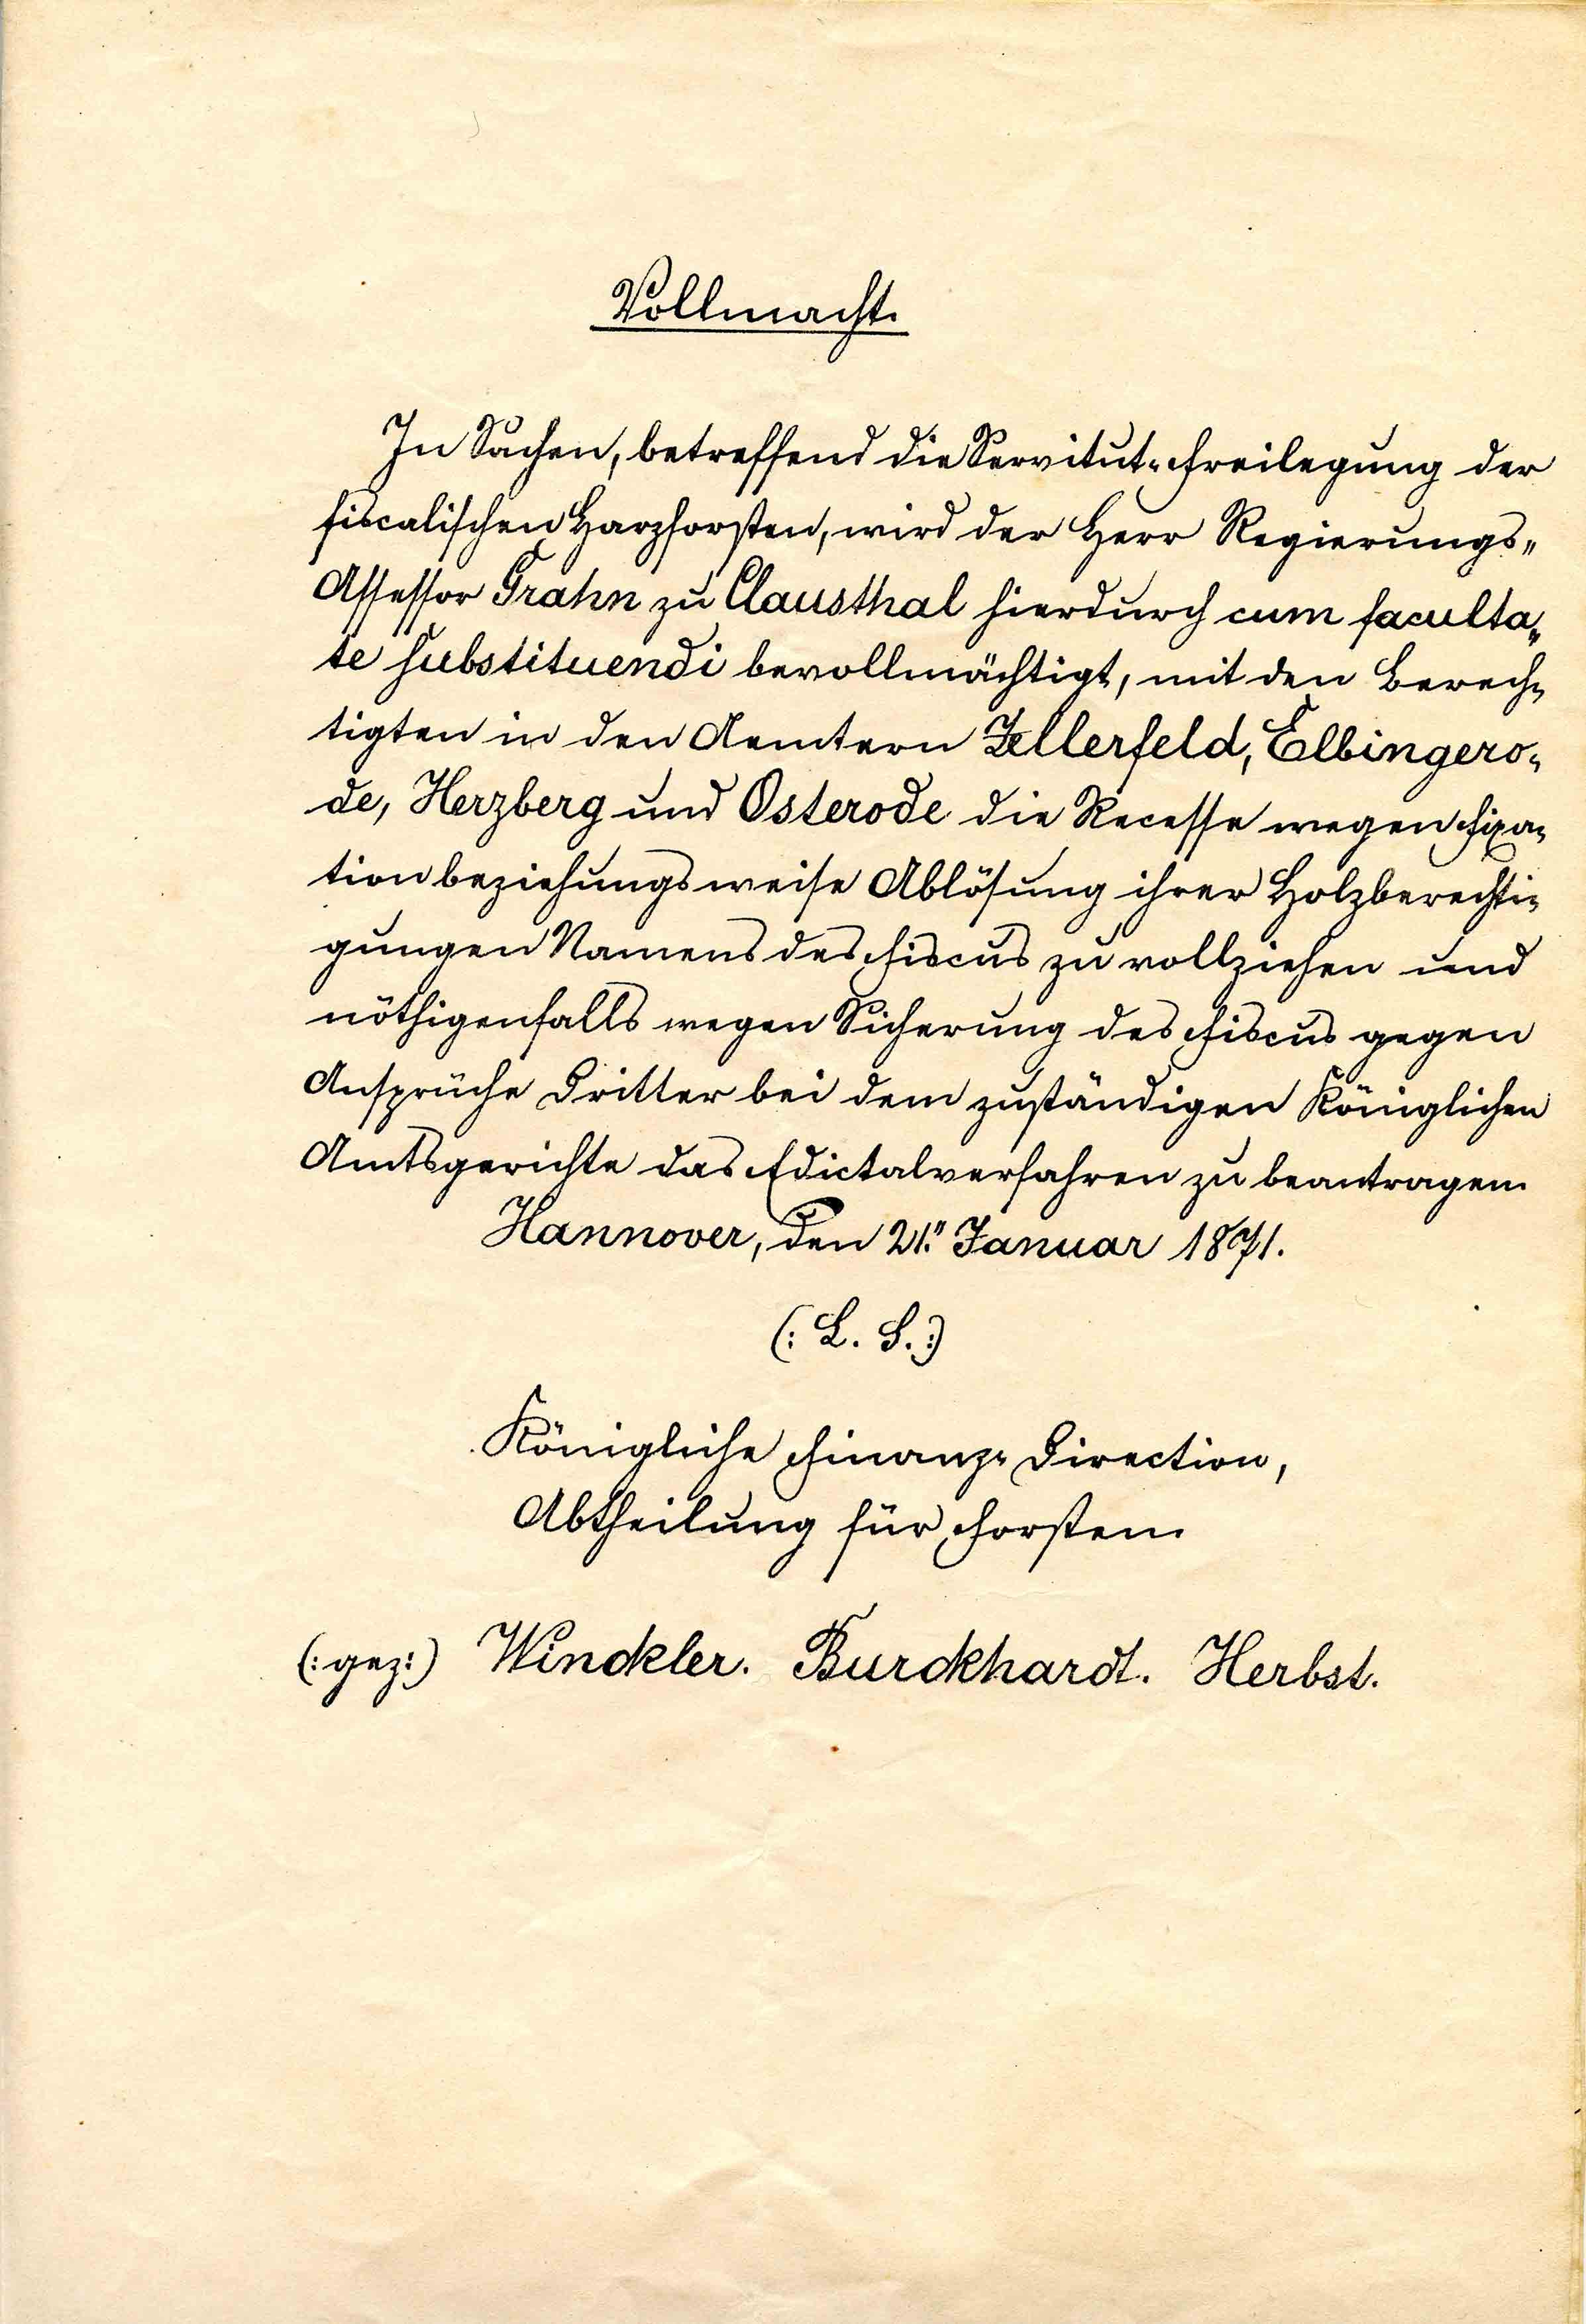 Vollmacht.
In Sachen, betreffend die Servitut-Freilegung der
fiscalischen Harzforsten, wird der Herr Regierungs-
Assessor Grahn zu Clausthal hierdurch cum faculta-
te substituendi bevollmächtigt, mit den Berech-
tigten in den Aemtern Zellerfeld, Elbingero-
de, Herzberg und Osterode die Recesse wegen Fixa-
tion beziehungsweise Ablösung ihrer Holzberechti-
gungen Namens des Fiscus zu vollziehen und
nöthigenfalls wegen Sicherung des Fiscus gegen
Ansprüche Dritter bei dem zuständigen Königlichen
Amtsgerichte das Edictalverfahren zu beantragen.
Hannover, den 21." Januar 1871.
(: L. S. :)
Königliche Finanz-Direction,
Abtheilung für Forsten.
(: gez: ) Winckler. Burckhardt. Herbst.